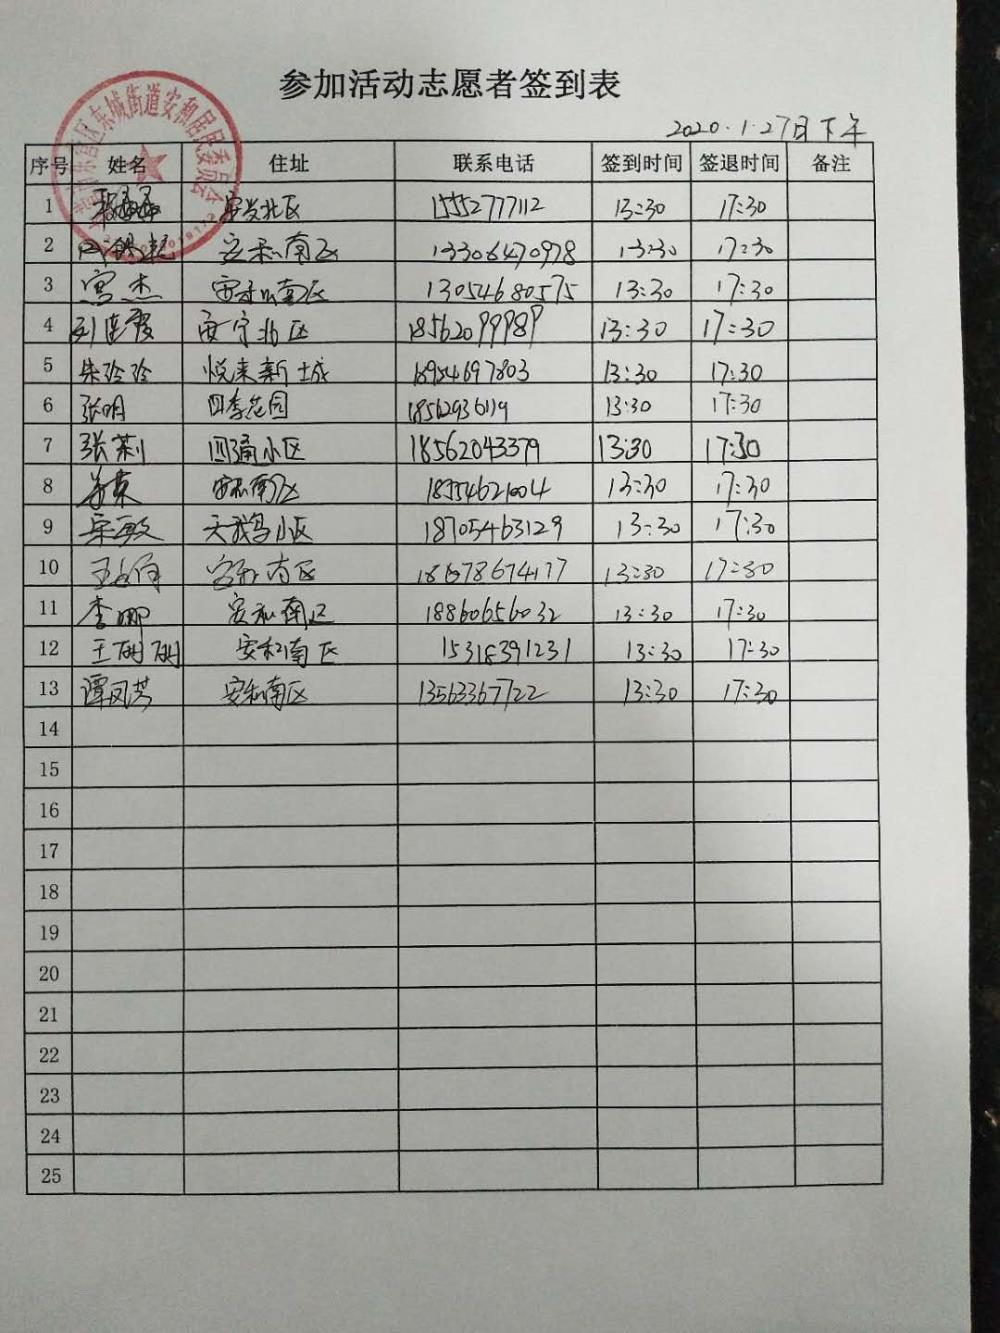 参加活动志愿者签到表
2020.1.27日下午
东营区东城街道安和居民委员会
序号 姓名 住址 联系电话 签到时间 签退时间 备注
1 15552777112 13:30 17:30
2 安和南区 13306470978 13:30 17:30
3 宫杰 安和南区 13054680575 13:30 17:30
4 刘莲霞 安宁北区 18562099989 13:30 17:30
5 朱玲玲 悦来新城 18954697803 13:30 17:30
6 张明 四季花园 18562936119 13:30 17:30
7 张莉 四通小区 18562043379 13:30 17:30
8 安和南区 18354621004 13:30 17:30
9 宋敏 天鹅小区 18705463129 13:30 17:30
10 安和南区 13:30 17:30
11 李娜 安和南区 18860656032 13:30 17:30
12 王丽丽 安和南区 15318391231 13:30 17:30
13 谭凤芳 安和南区 13563367722 13:30 17:30
14
15
16
17
18
19
20
21
22
23
24
25